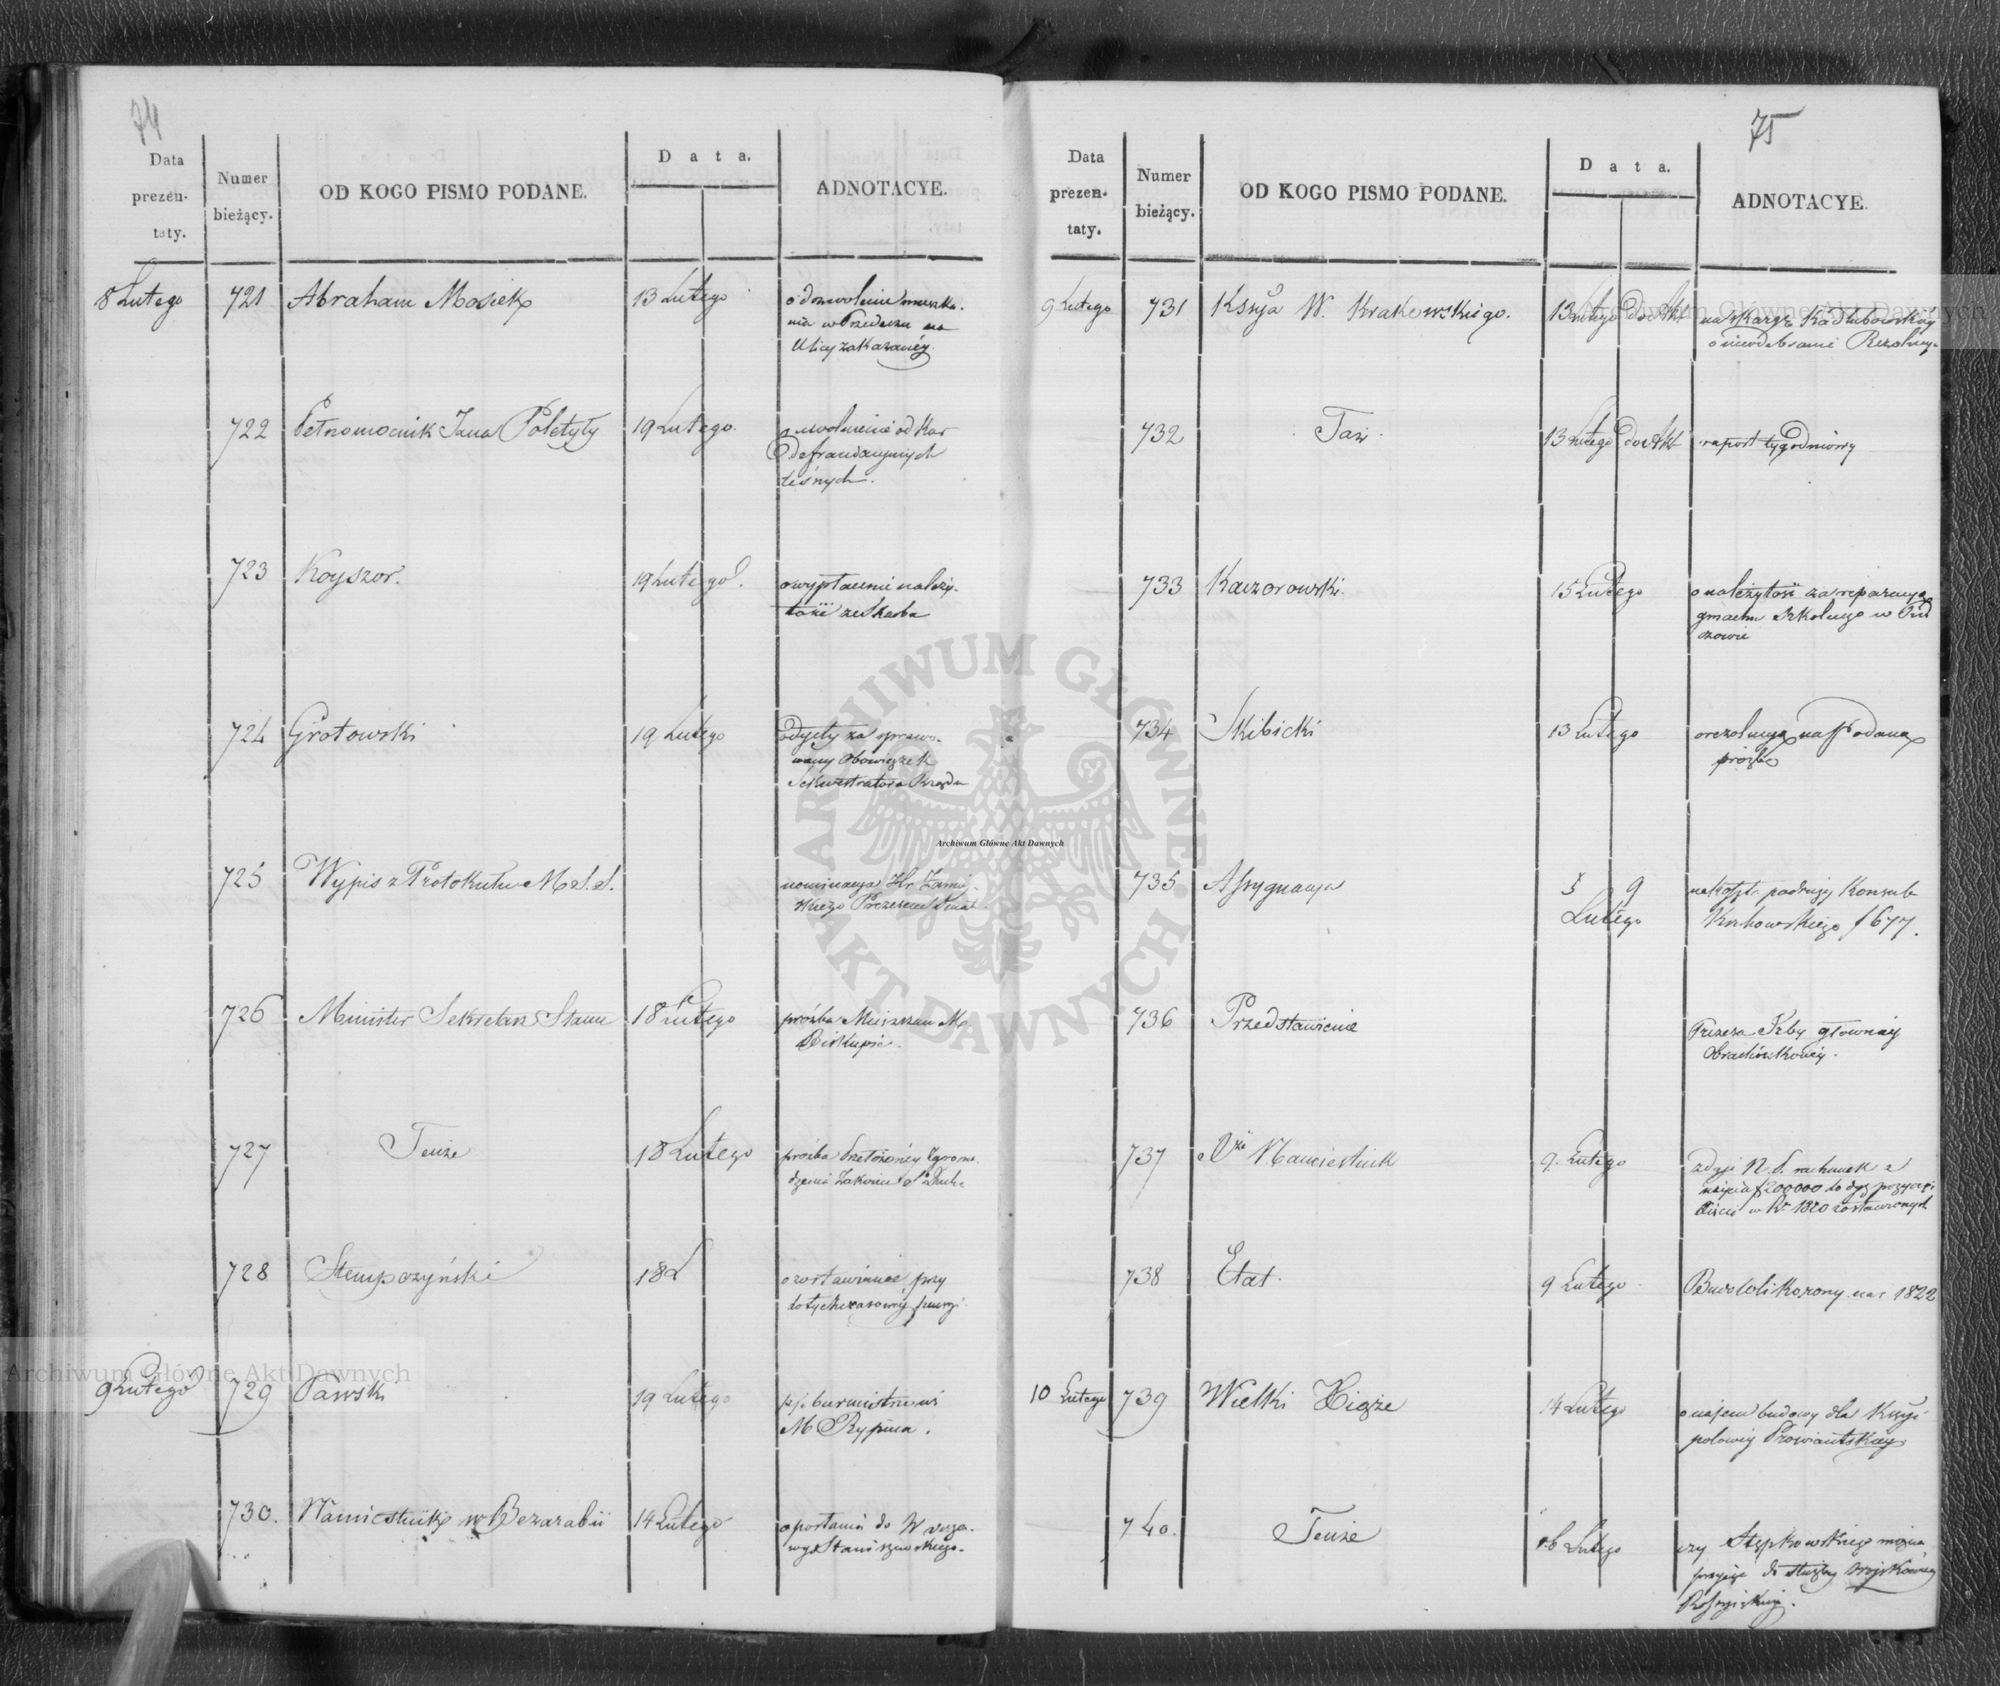 74
Data
prezen-
taty.
Numer
bieżący.
OD KOGO PISMO PODANE.
Data.
ADNOTACYE.
8 Lutego 721 Abraham Mosiek 13 Lutego
o dozwolenie mieszka-
nia w Przedeczu na
Ulicy zakazanéy.
722 Pełnomocnik Jana Poletyły 19 Lutego.
o uwolnienie od kar
defraudacyinych
leśnych.
723 Koyszor. 19 Lutego.
o wypłacenie należy-
tości ze Skarbu
724 Grotowski 19 Lutego
o dyety za sprawo-
wany Obowiązek
Sekwestratora Rządu
725 Wypis z Protokułu
nominacya Hr. Zamoy-
skiego Prezesem Senat
726 Minister Sekretarz Stanu 18 Lutego
prośba Mieszkan M.
Biskupic.
727 Tenże 18 Lutego
prośba Przełożonéy Zgroma-
dzenia Zakonu Ducha
728 Stempczyński 18 L
o zostawienie przy
dotychczasowéy
9 Lutego 729 Pawski 19 Lutego
burmistrzowi
M Rypina.
730. Namiestnik w Bezarabii 14 Lutego
o posłanie do Warsza-
wy Staniszewskiego.
75
Data
prezen-
taty.
Numer
bieżący.
OD KOGO PISMO PODANE.
Data.
ADNOTACYE.
9 Lutego 731 Kssya W. Krakowskiego. 13 Lutego do Akt
na skargę Kadłubowskiéy
o nieodebranie Rezolucy-
732 Taż. 13 Lutego do Akt raport tygodniowy
733 Kaczorowski. 15 Lutego
o należytość za reparacyą
gmachu Szkolnego w Piń
czowie
734 Skibicki 13 Lutego
o rezolucyą na Podaną
prośbę
735 Assygnacya 5 9
Lutego
na koszta podróży Konsula
f 677.
736 Przedstawienie
Prezesa Izby głównéy
Obrachunkowéy.
737 Xże Namiestnik 9. Lutego
Zdaje N. P. rachunek z
użycia f 200000 do dyspozycyi
Jego w R. 1820 zostawionych
738 Etat. 9 Lutego.
Buwoli Korony na r 1822
10 Lutego 739 Wielki Xiąże 14 Lutego
o najem budowy dla Kssyi
polowéy Prowiantskiéy
740. Tenże 16 Lutego
czy Stępkowskiego można
przyjąć do służby woyskowéy
Rossyiskiéy.
Archiwum Główne Akt Dawnych
Archiwum Główne Akt Dawnych
Archiwum Główne Akt Dawnych
ARCHIWUM GŁÓWNE AKT DAWNYCH